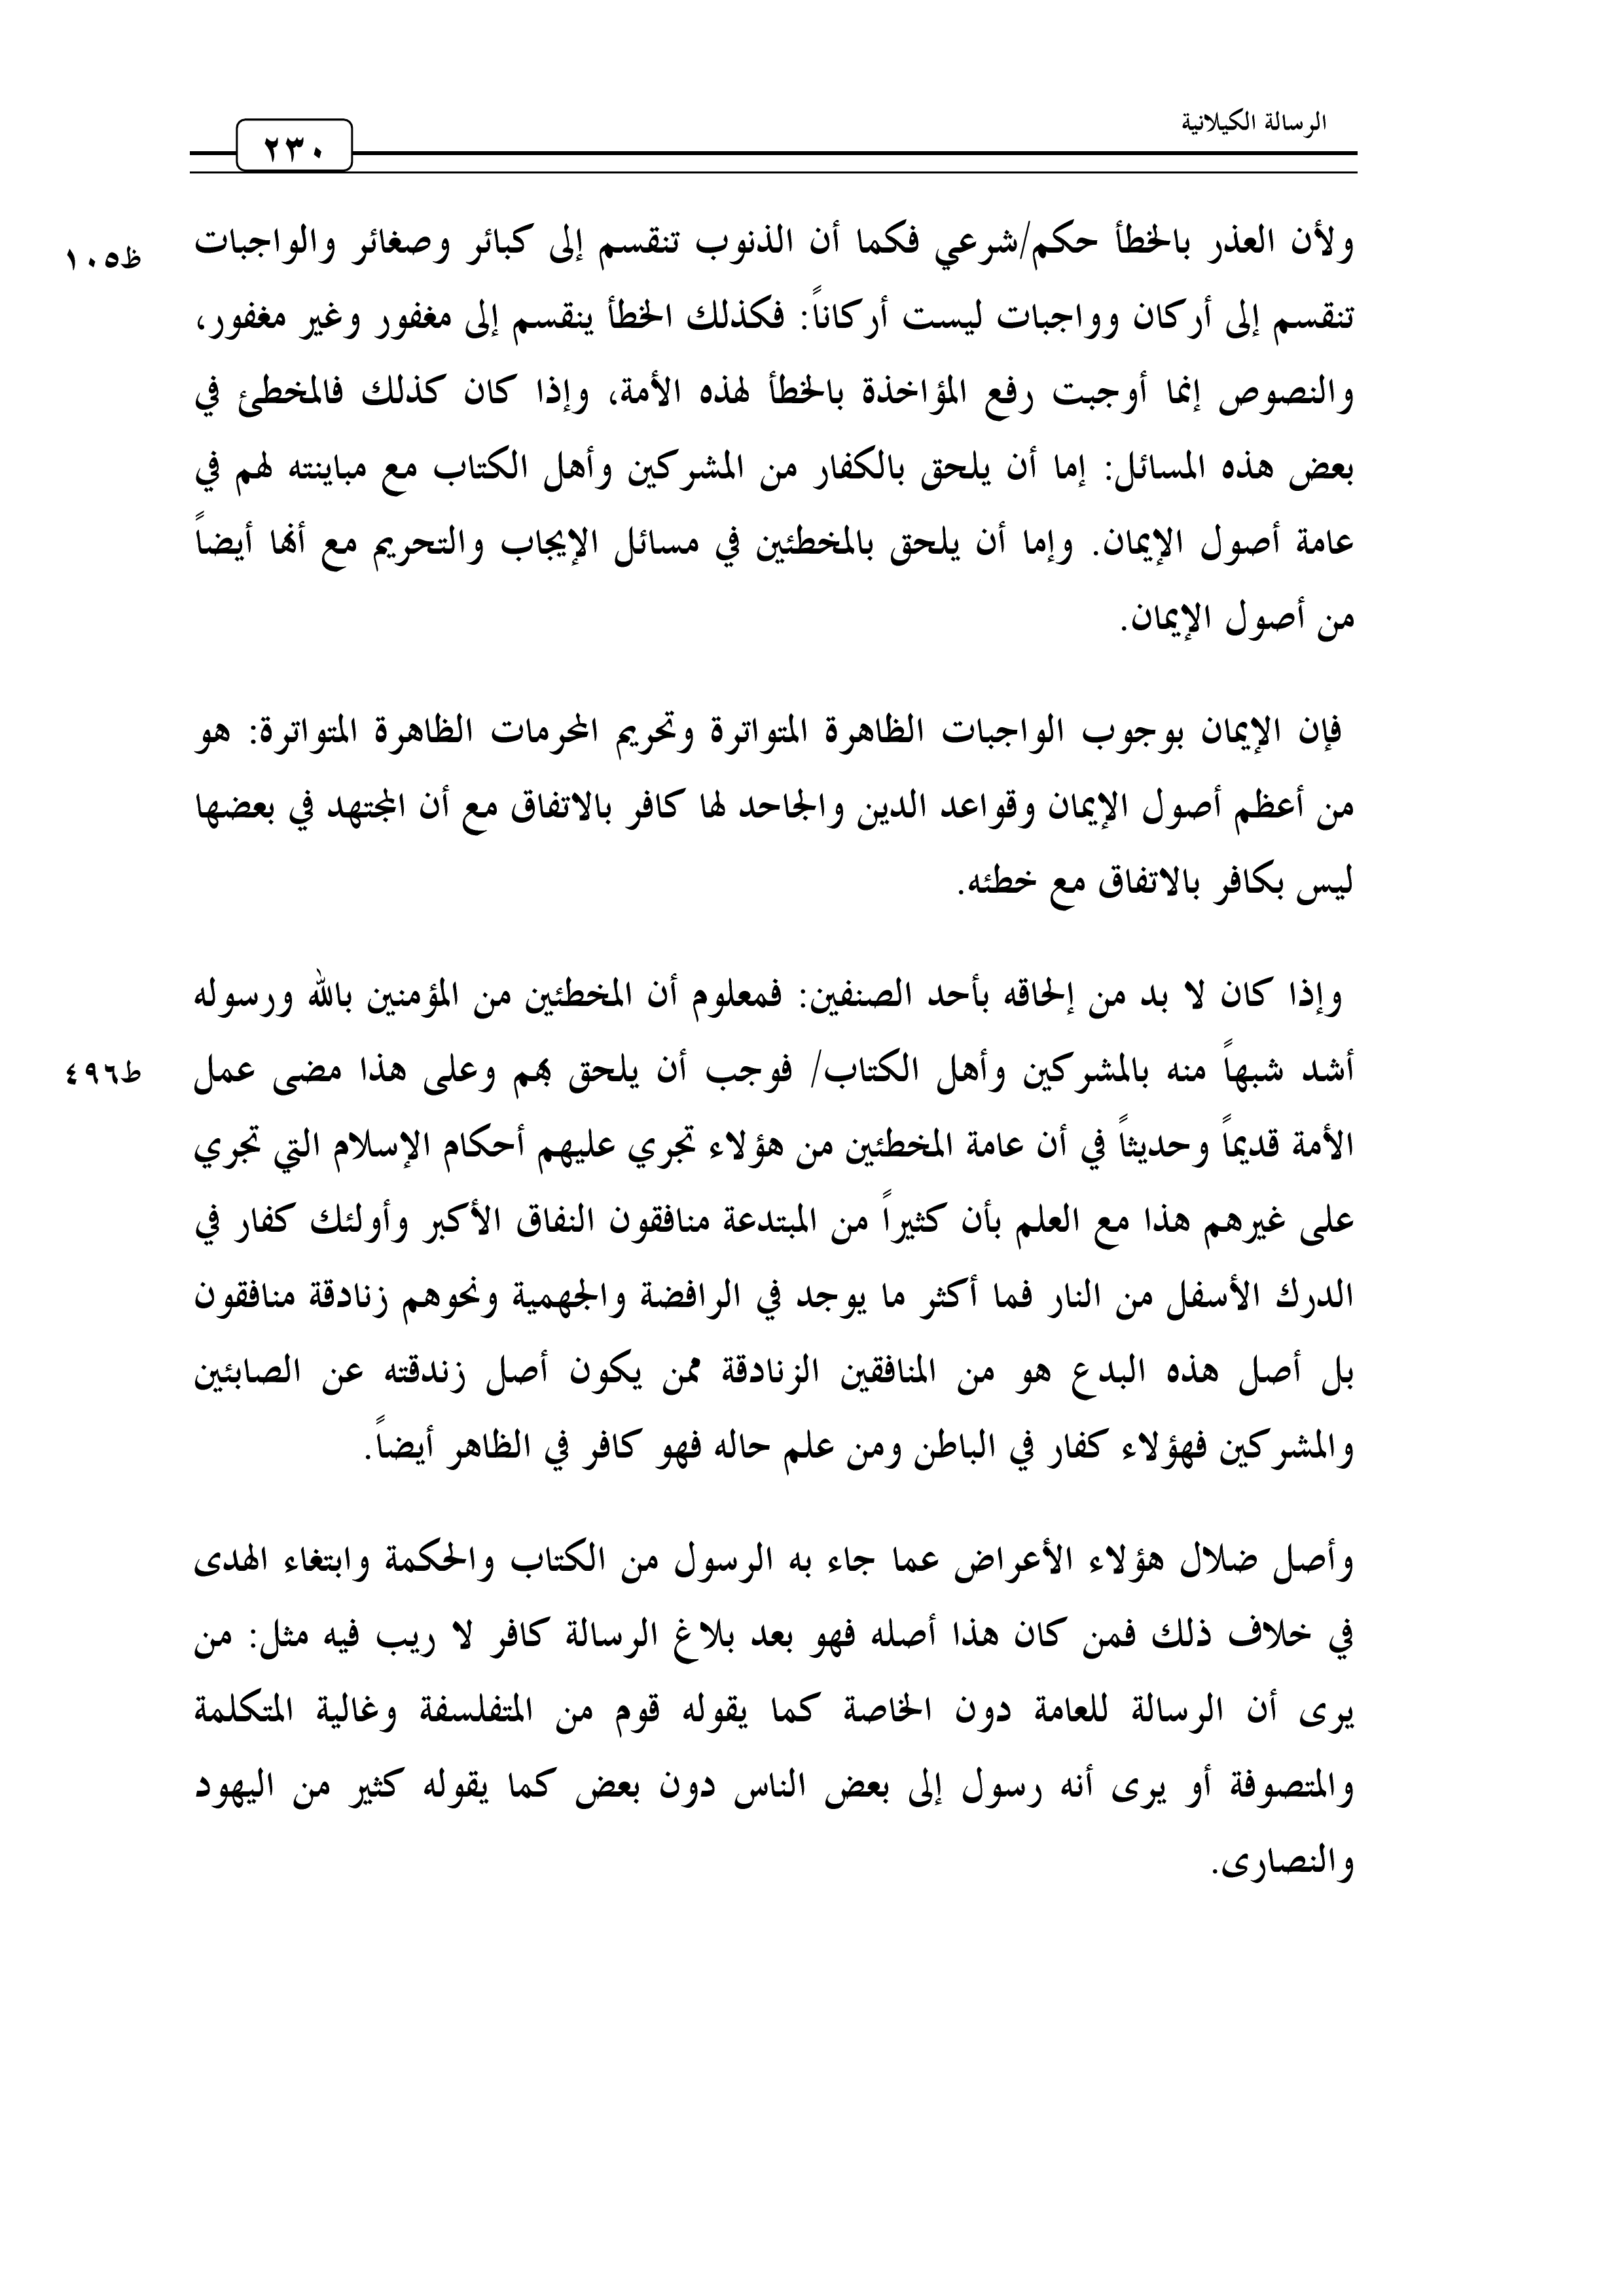 الرسالة الكيلانية
٢٣٠
ولأن العذر بالخطأ حكم/شرعي فكما أن الذنوب تنقسم إلى كبائر وصغائر والواجبات
ظ١٠٥
تنقسم إلى أركان وواجبات ليست أركاناً: فكذلك الخطأ ينقسم إلى مغفور وغير مغفور،
والنصوص إنما أوجبت رفع المؤاخذة بالخطأ لهذه الأمة، وإذا كان كذلك فالمخطئ في
بعض هذه المسائل: إما أن يلحق بالكفار من المشركين وأهل الكتاب مع مباينته لهم في
عامة أصول الإيمان. وإما أن يلحق بالمخطئين في مسائل الإيجاب والتحريم مع أنها أيضاً
من أصول الإيمان.
فإن الإيمان بوجوب الواجبات الظاهرة المتواترة وتحريم المحرمات الظاهرة المتواترة: هو
من أعظم أصول الإيمان وقواعد الدين والجاحد لها كافر بالاتفاق مع أن المجتهد في بعضها
ليس بكافر بالاتفاق مع خطئه.
وإذا كان لا بد من إلحاقه بأحد الصنفين: فمعلوم أن المخطئين من المؤمنين بالله ورسوله
أشد شبهاً منه بالمشركين وأهل الكتاب/ فوجب أن يلحق بهم وعلى هذا مضى عمل
ط٤٩٦
الأمة قديماً وحديثاً في أن عامة المخطئين من هؤلاء تجري عليهم أحكام الإسلام التي تجري
على غيرهم هذا مع العلم بأن كثيراً من المبتدعة منافقون النفاق الأكبر وأولئك كفار في
الدرك الأسفل من النار فما أكثر ما يوجد في الرافضة والجهمية ونحوهم زنادقة منافقون
بل أصل هذه البدع هو من المنافقين الزنادقة ممن يكون أصل زندقته عن الصابئين
والمشركين فهؤلاء كفار في الباطن ومن علم حاله فهو كافر في الظاهر أيضاً.
وأصل ضلال هؤلاء الأعراض عما جاء به الرسول من الكتاب والحكمة وابتغاء الهدى
في خلاف ذلك فمن كان هذا أصله فهو بعد بلاغ الرسالة كافر لا ريب فيه مثل: من
يرى أن الرسالة للعامة دون الخاصة كما يقوله قوم من المتفلسفة وغالية المتكلمة
والمتصوفة أو يرى أنه رسول إلى بعض الناس دون بعض كما يقوله كثير من اليهود
والنصارى.